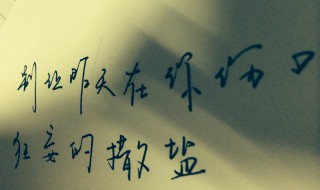 别让昨天在你伤口
狂妄的撒盐